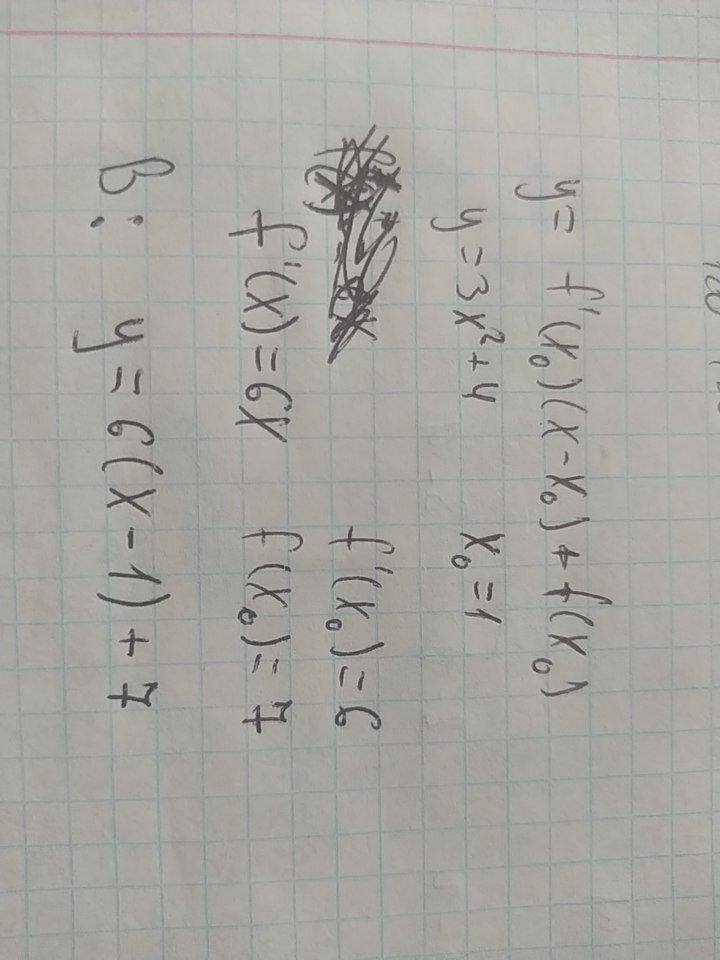 y = f'(x₀)(x-x₀)+f(x₀)
y = 3x²+4 x₀=1
f'(x₀)=6
f'(x)=6x f(x₀)=7
B: y = 6(x-1)+7